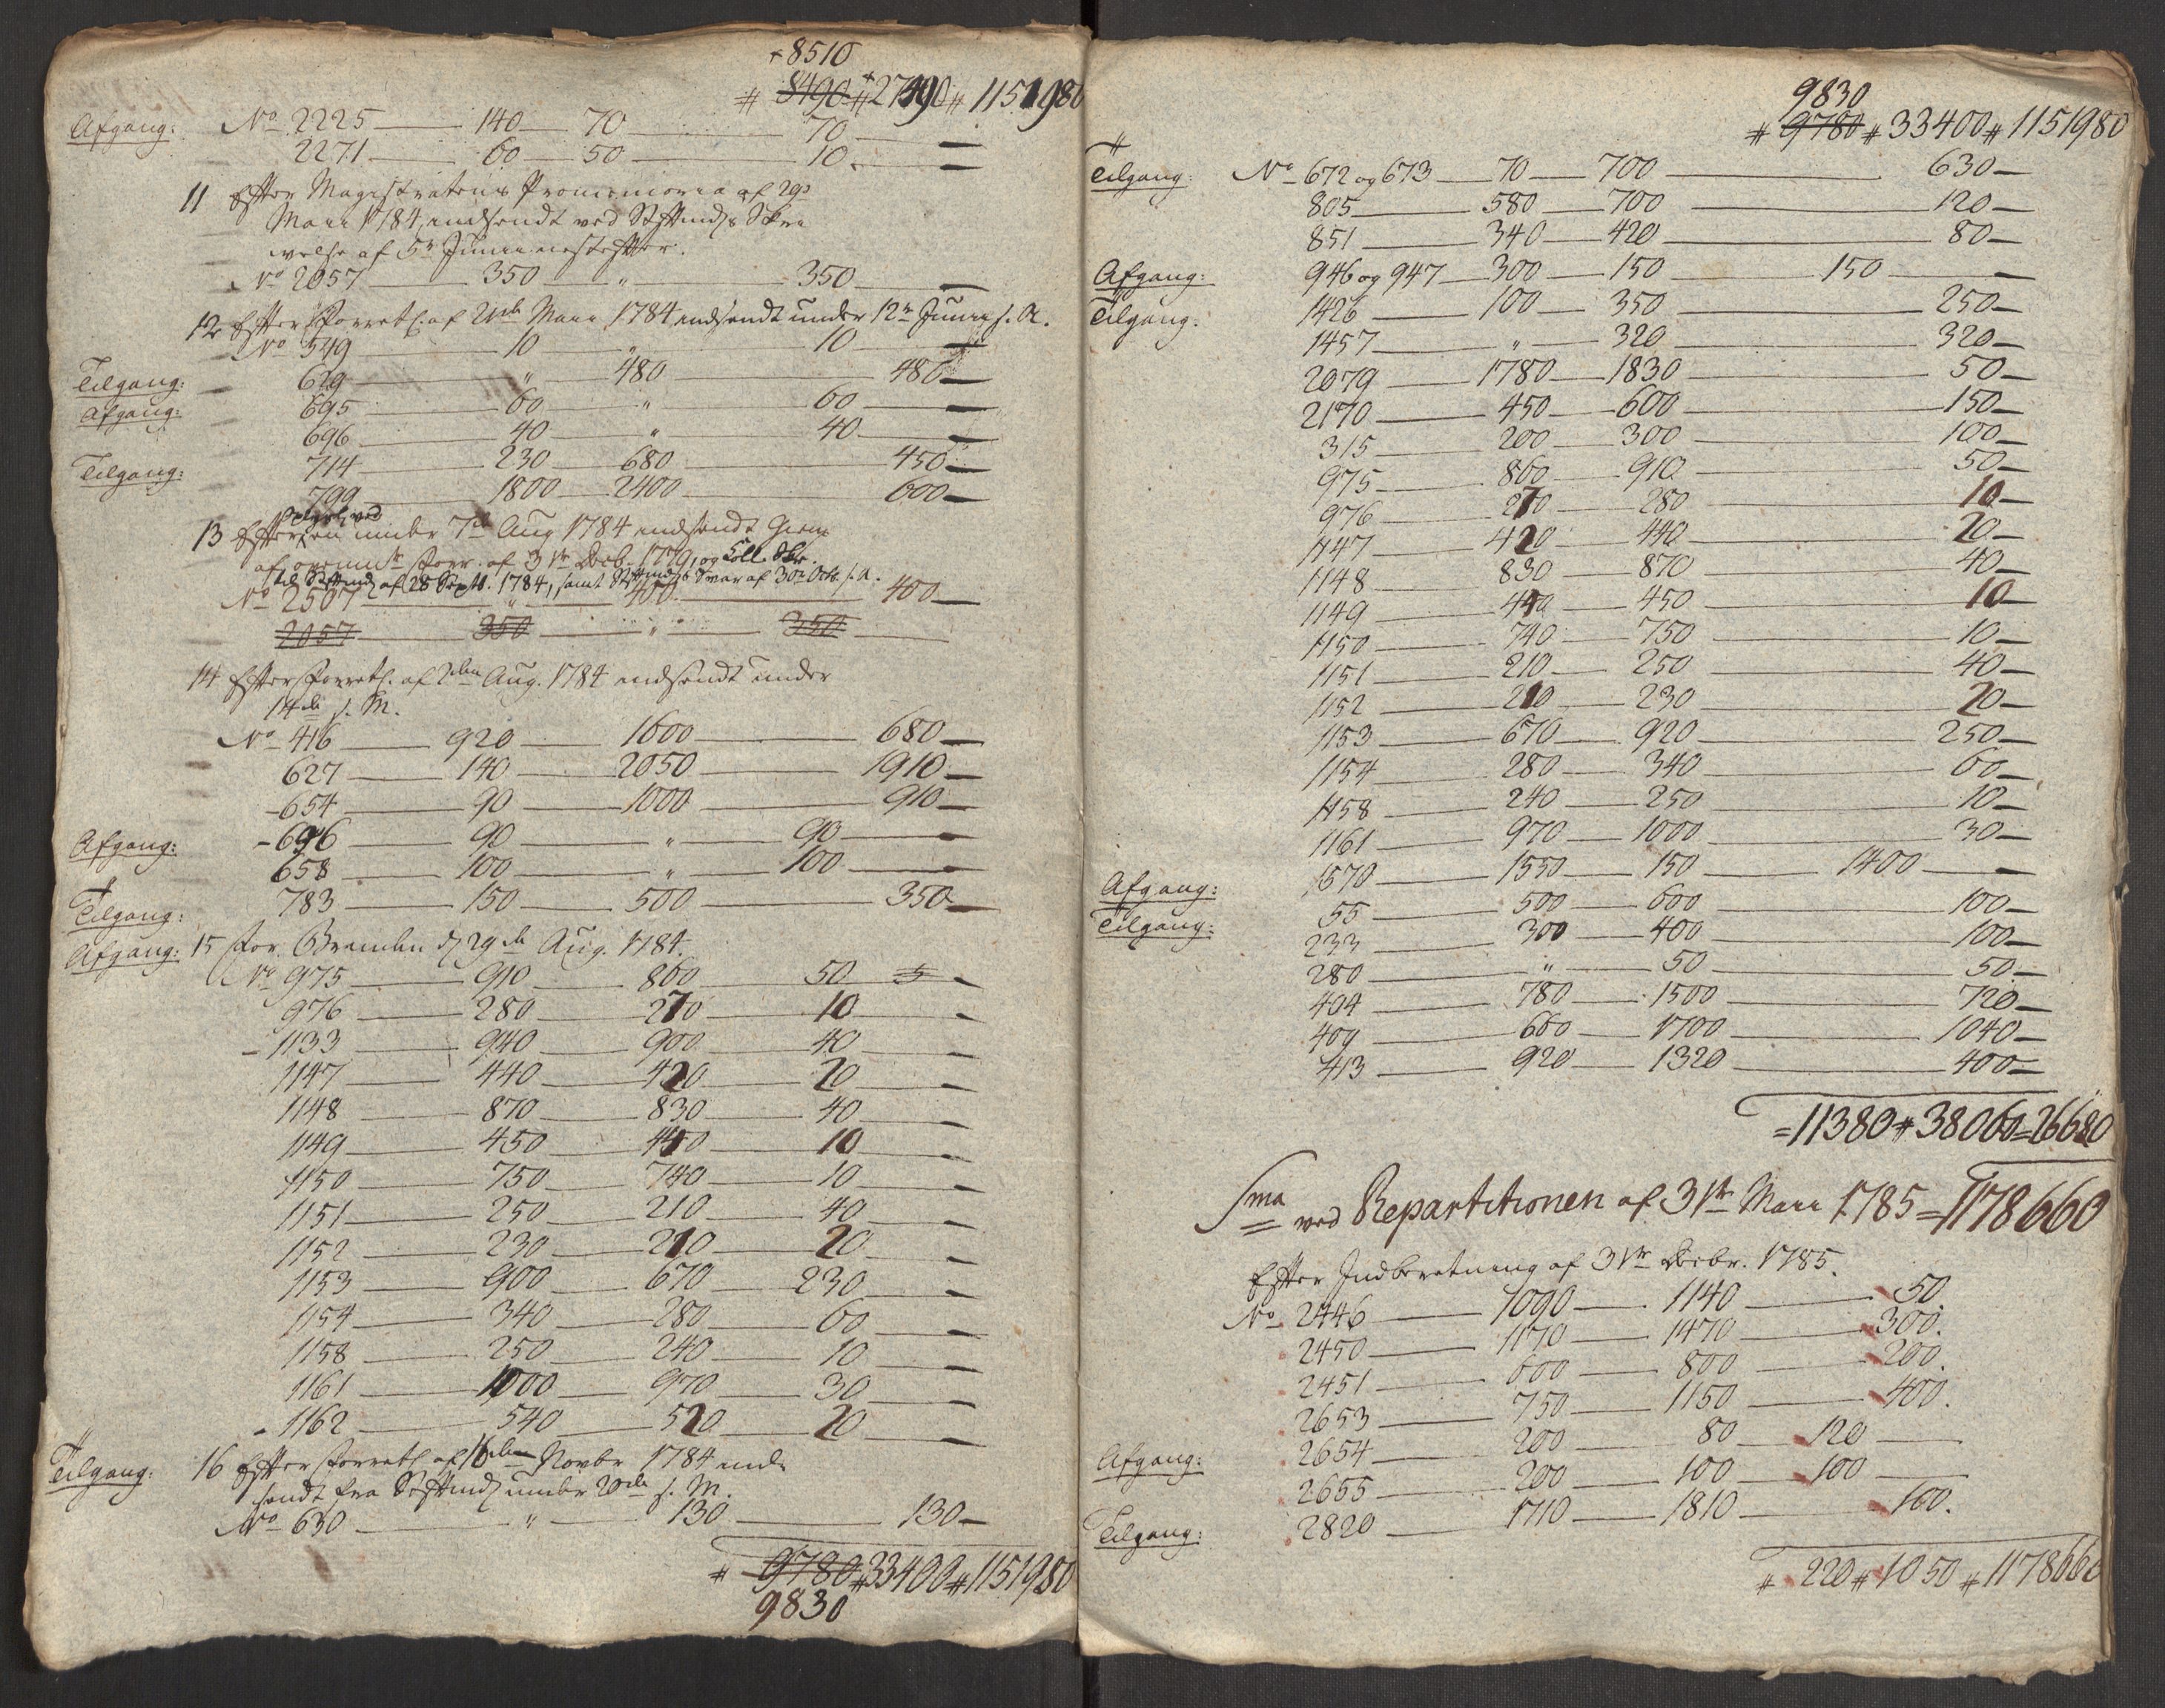 +8510
# 8490 # 27490 # 1151980
Afgang: No 2225 — 140 — 70 — 70 —
2271 — 60 — 50 — 10 —
11 Efter Magistratens Promemoria af 29de
Maii 1784, indsendt ved Stiftmds Skri
velse af 5te Junii nestefter.
No 2057 — 350 — " — 350 —
12 Efter Forretn. af 21de Maii 1784 indsendt under 12te Junii s. A.
No 549 — 10 — " — 10 —
Tilgang: 679 — " — 480 — 480 —
Afgang: 695 — 60 — " — 60 —
696 — 40 — " — 40 —
Tilgang: 714 — 230 — 680 — 450 —
799 — 1800 — 2400 — 600 —
ved
13 Efter en under 7de Aug 1784 indsendt
af 31te Decb. 1779, og Coll. Skr.
til Stiftmd af 28 Sept. 1784, samt Stiftmds Svar af 30te Octb. s. A.
No 2507 — " — 400 — 400 —
2057 — 350 — " — 350 —
14 Efter Forretn. af 2den Aug. 1784 indsendt under
14de s. M.
No 416 — 920 — 1600 — 680 —
627 — 140 — 2050 — 1910 —
-654 — 90 — 1000 — 910 —
Afgang: -696 — 90 — " — 90 —
658 — 100 — " — 100 —
Tilgang: 783 — 150 — 500 — 350 —
Afgang: 15 For. Branden d. 29de Aug. 1784.
No 975 — 910 — 860 — 50 —
976 — 280 — 270 — 10 —
- 1133 — 940 — 900 — 40 —
1147 — 440 — 420 — 20 —
1148 — 870 — 830 — 40 —
1149 — 450 — 440 — 10 —
1150 — 750 — 740 — 10 —
1151 — 250 — 210 — 40 —
1152 — 230 — 210 — 20 —
1153 — 900 — 670 — 230 —
1154 — 340 — 280 — 60 —
1158 — 250 — 240 — 10 —
1161 — 1000 — 970 — 30 —
- 1162 — 540 — 520 — 20 —
Tilgang: 16 Efter Forretn. af 16den Novbr 1784 ind-
sendt fra Stiftmd under 20de s. M.
No 630 — " — 130 — 130 —
# 9780 # 33400 # 1151980
9830
9830
# 9780 # 33400 # 1151980
Tilgang: No 672 og 673 — 70 — 700 — 630 —
805 — 580 — 700 — 120 —
851 — 340 — 420 — 80 —
Afgang: 946 og 947 — 300 — 150 — 150 —
Tilgang: 1426 — 100 — 350 — 250 —
1457 — " — 320 — 320 —
2079 — 1780 — 1830 — 50 —
2170 — 450 — 600 — 150 —
315 — 200 — 300 — 100 —
975 — 860 — 910 — 50 —
976 — 270 — 280 — 10 —
1147 — 420 — 440 — 20 —
1148 — 830 — 870 — 40 —
1149 — 440 — 450 — 10 —
1150 — 740 — 750 — 10 —
1151 — 210 — 250 — 40 —
1152 — 210 — 230 — 20 —
1153 — 670 — 920 — 250 —
1154 — 280 — 340 — 60 —
1158 — 240 — 250 — 10 —
1161 — 970 — 1000 — 30 —
Afgang: 1570 — 1550 — 150 — 1400 —
Tilgang: 55 — 500 — 600 — 100 —
233 — 300 — 400 — 100 —
280 — " — 50 — 50 —
404 — 780 — 1500 — 720 —
409 — 660 — 1700 — 1040 —
413 — 920 — 1320 — 400 —
= 11380 # 38060 = 26680
Sma ved Repartitionen af 31te Maii 1785 = 1178660
Efter Indberetning af 31te Decbr. 1785.
No 2446 — 1090 — 1140 — 50.
2450 — 1170 — 1470 — 300.
2451 — 600 — 800 — 200.
2653 — 750 — 1150 — 400.
Afgang: 2654 — 200 — 80 — 120 —
2655 — 200 — 100 — 100 —
Tilgang: 2820 — 1710 — 1810 — 100.
# 220 # 1050 # 1178660